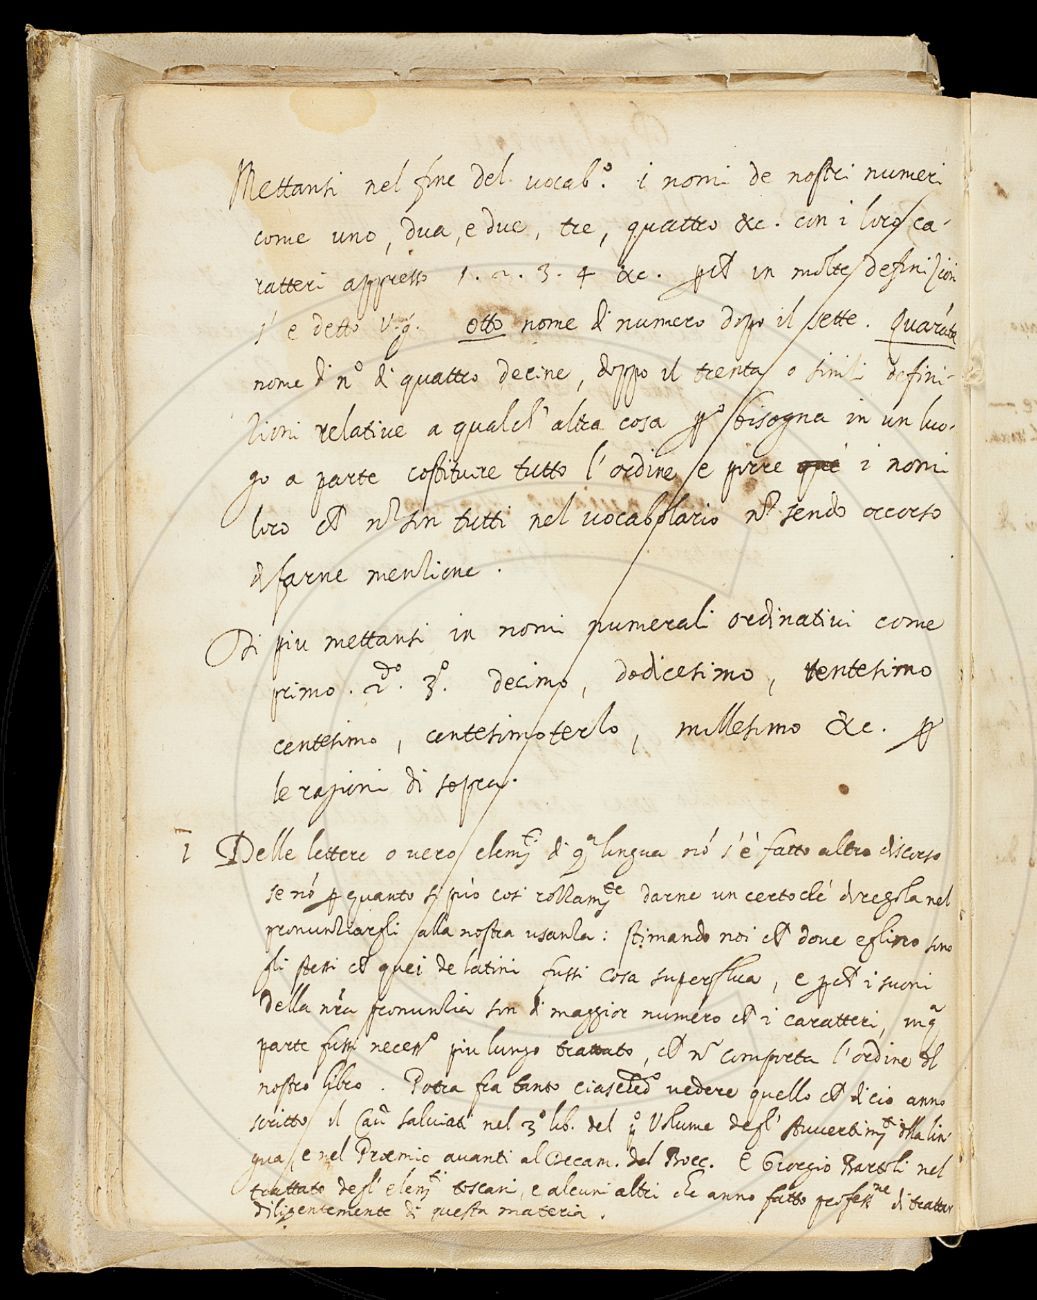 Mettansi nel fine del vocab.° i nomi de nostri numeri
come uno, dua, e due, tre, quattro &c. con i loro ca-
ratteri appresso 1. 2. 3. 4 &c. in molte definizion
s' è detto v.g. otto nome di numero doppo il sette. Quarãta
nome di n° di quattro decine, doppo il trenta o simili defini-
zioni relative a qualch' altra cosa bisogna in un luo-
go a parte costituire tutto l'ordine e porre i nomi
loro nõ son tutti nel vocabolario nõ sendo occorso
di farne menzione.
Di piu mettansi in nomi numerali ordinativi come
primo. 2do. 3°. decimo, dodicesimo, ventesimo
centesimo, centesimoterzo, millesimo &c. p
le ragioni di sopra.
1 Delle lettere o vero elemti di qa lingua nõ s'è fatto altro discorso
se nõ p quanto si può così rozzamte darne un certo chè di regola nel
pronunziargli alla nostra usanza: stimando noi ch dove eglino sono
gli stessi ch quei de latini fussi cosa superflua, e pch i suoni
della nra pronunzia son di maggior numero ch i caratteri, in qa
parte fussi necesso piu lungo trattato, ch nõ comporta l'ordine dl
nostro libro. Potra fra tanto ciaschedo vedere quello ch di cio anno
scritto il Cav Salviati nel 3° lib. del p° Volume degl' Avvertimti dlla lin-
gua e nel Proemio avanti al Decam. del Bocc. E Giorgio Bartoli nel
trattato degl' elemti toscani, e alcuni altri che anno fatto professne di trattar
diligentemente di questa materia.